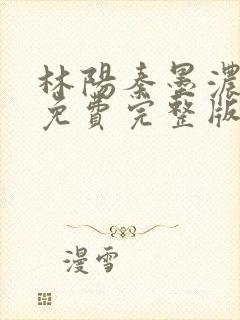 林陽秦墨濃
免費完整版
漫雪